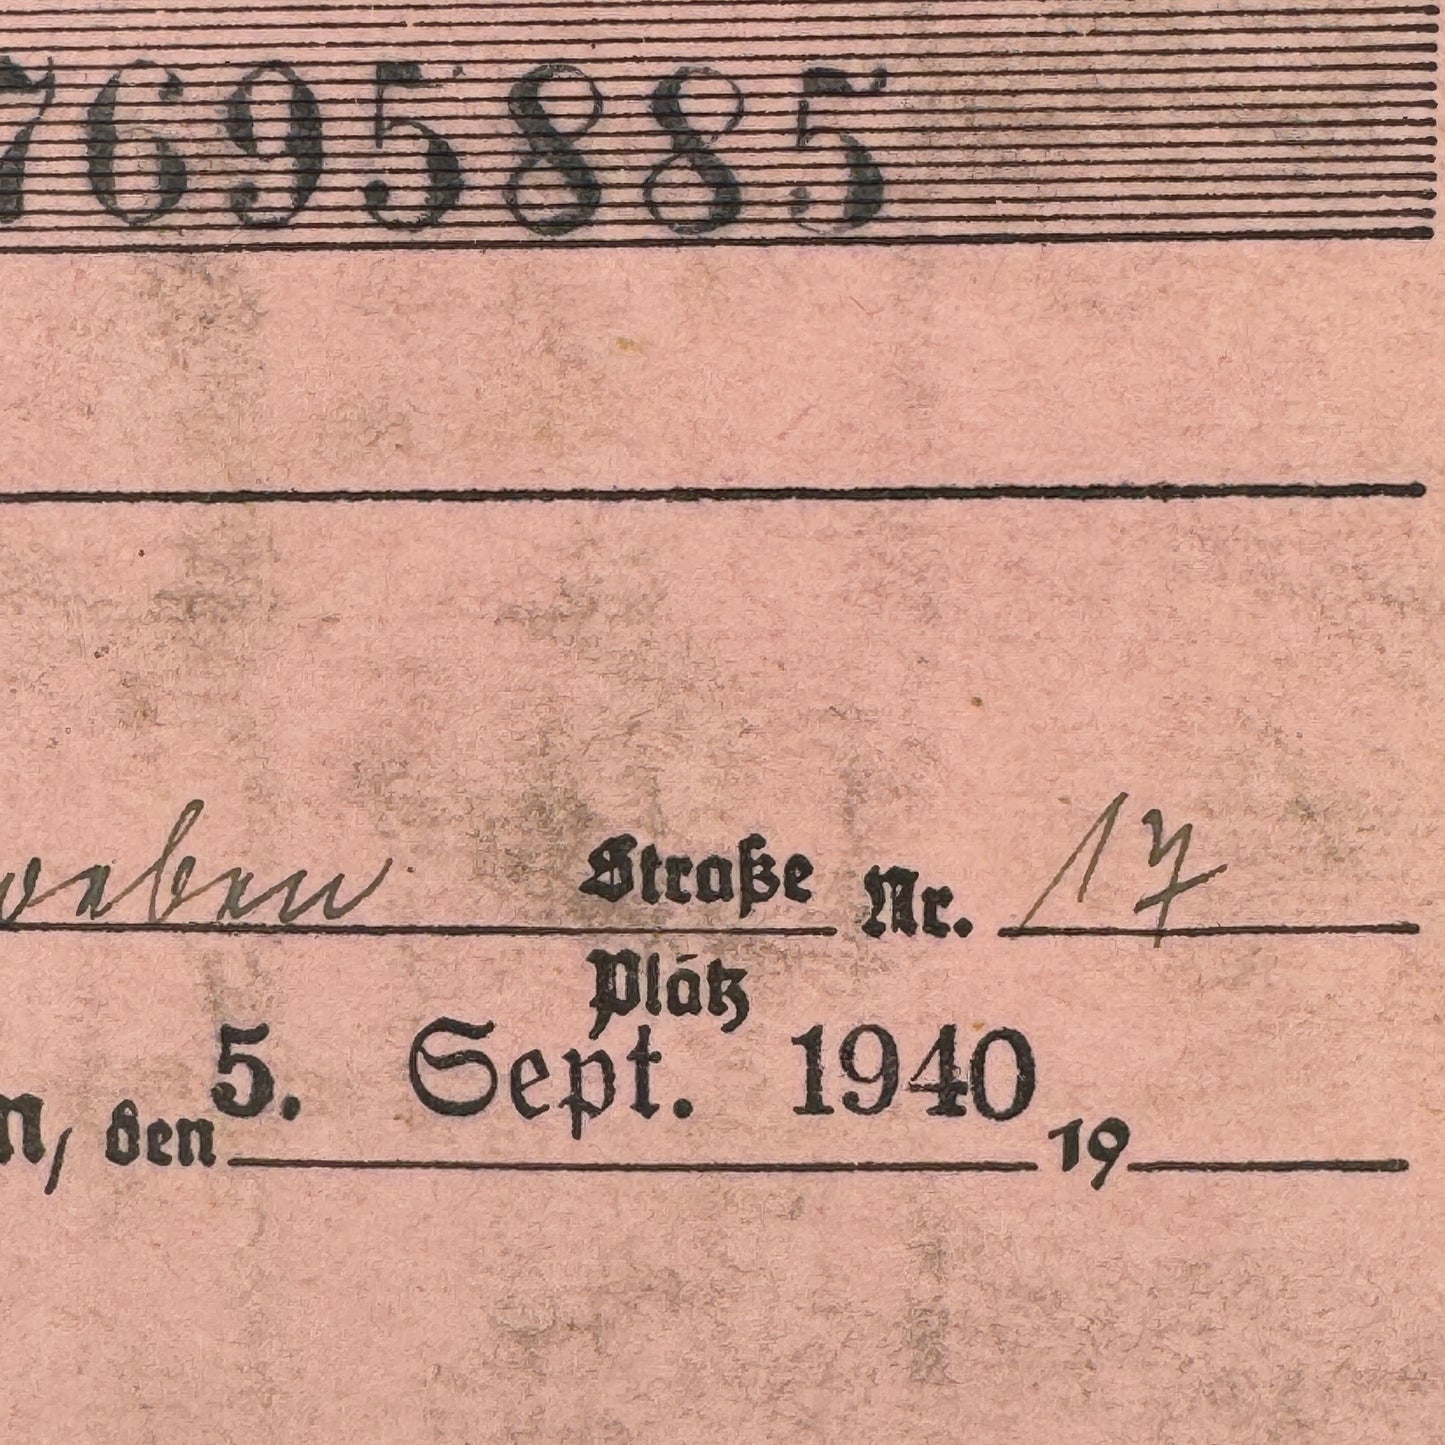 7695885
Straße Nr. 17
Platz
n, den 5. Sept. 1940 19